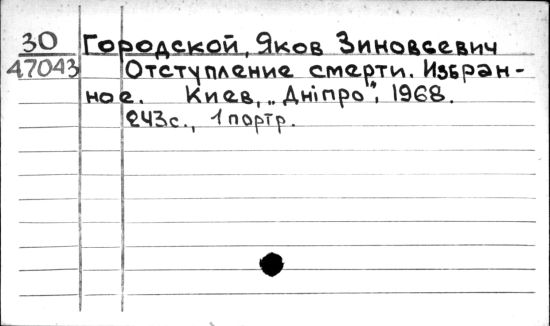 30 Городской, Яков Зиновсевич
47043 Отступление смерти. Избран-
ное. Киев, „Дніпро", 1968.
243с., 1 портр.